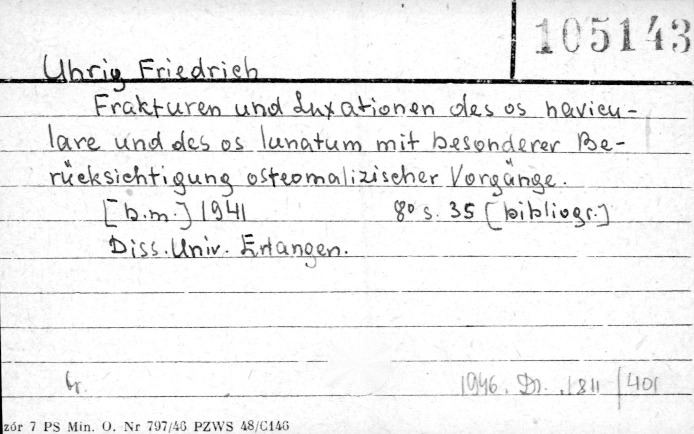 105143
Uhrig Friedrich
Frakturen und Luxationen des os navicu-
lare und des os lunatum mit besonderer Be-
rücksichtigung osteomalizischer Vorgänge.
[b.m.] 1941 8° s. 35 [bibliogr.]
Diss. Univ. Erlangen.
br. 1946. Dr. 1811/401
zór 7 PS Min. O. Nr 797/46 PZWS 48/C146